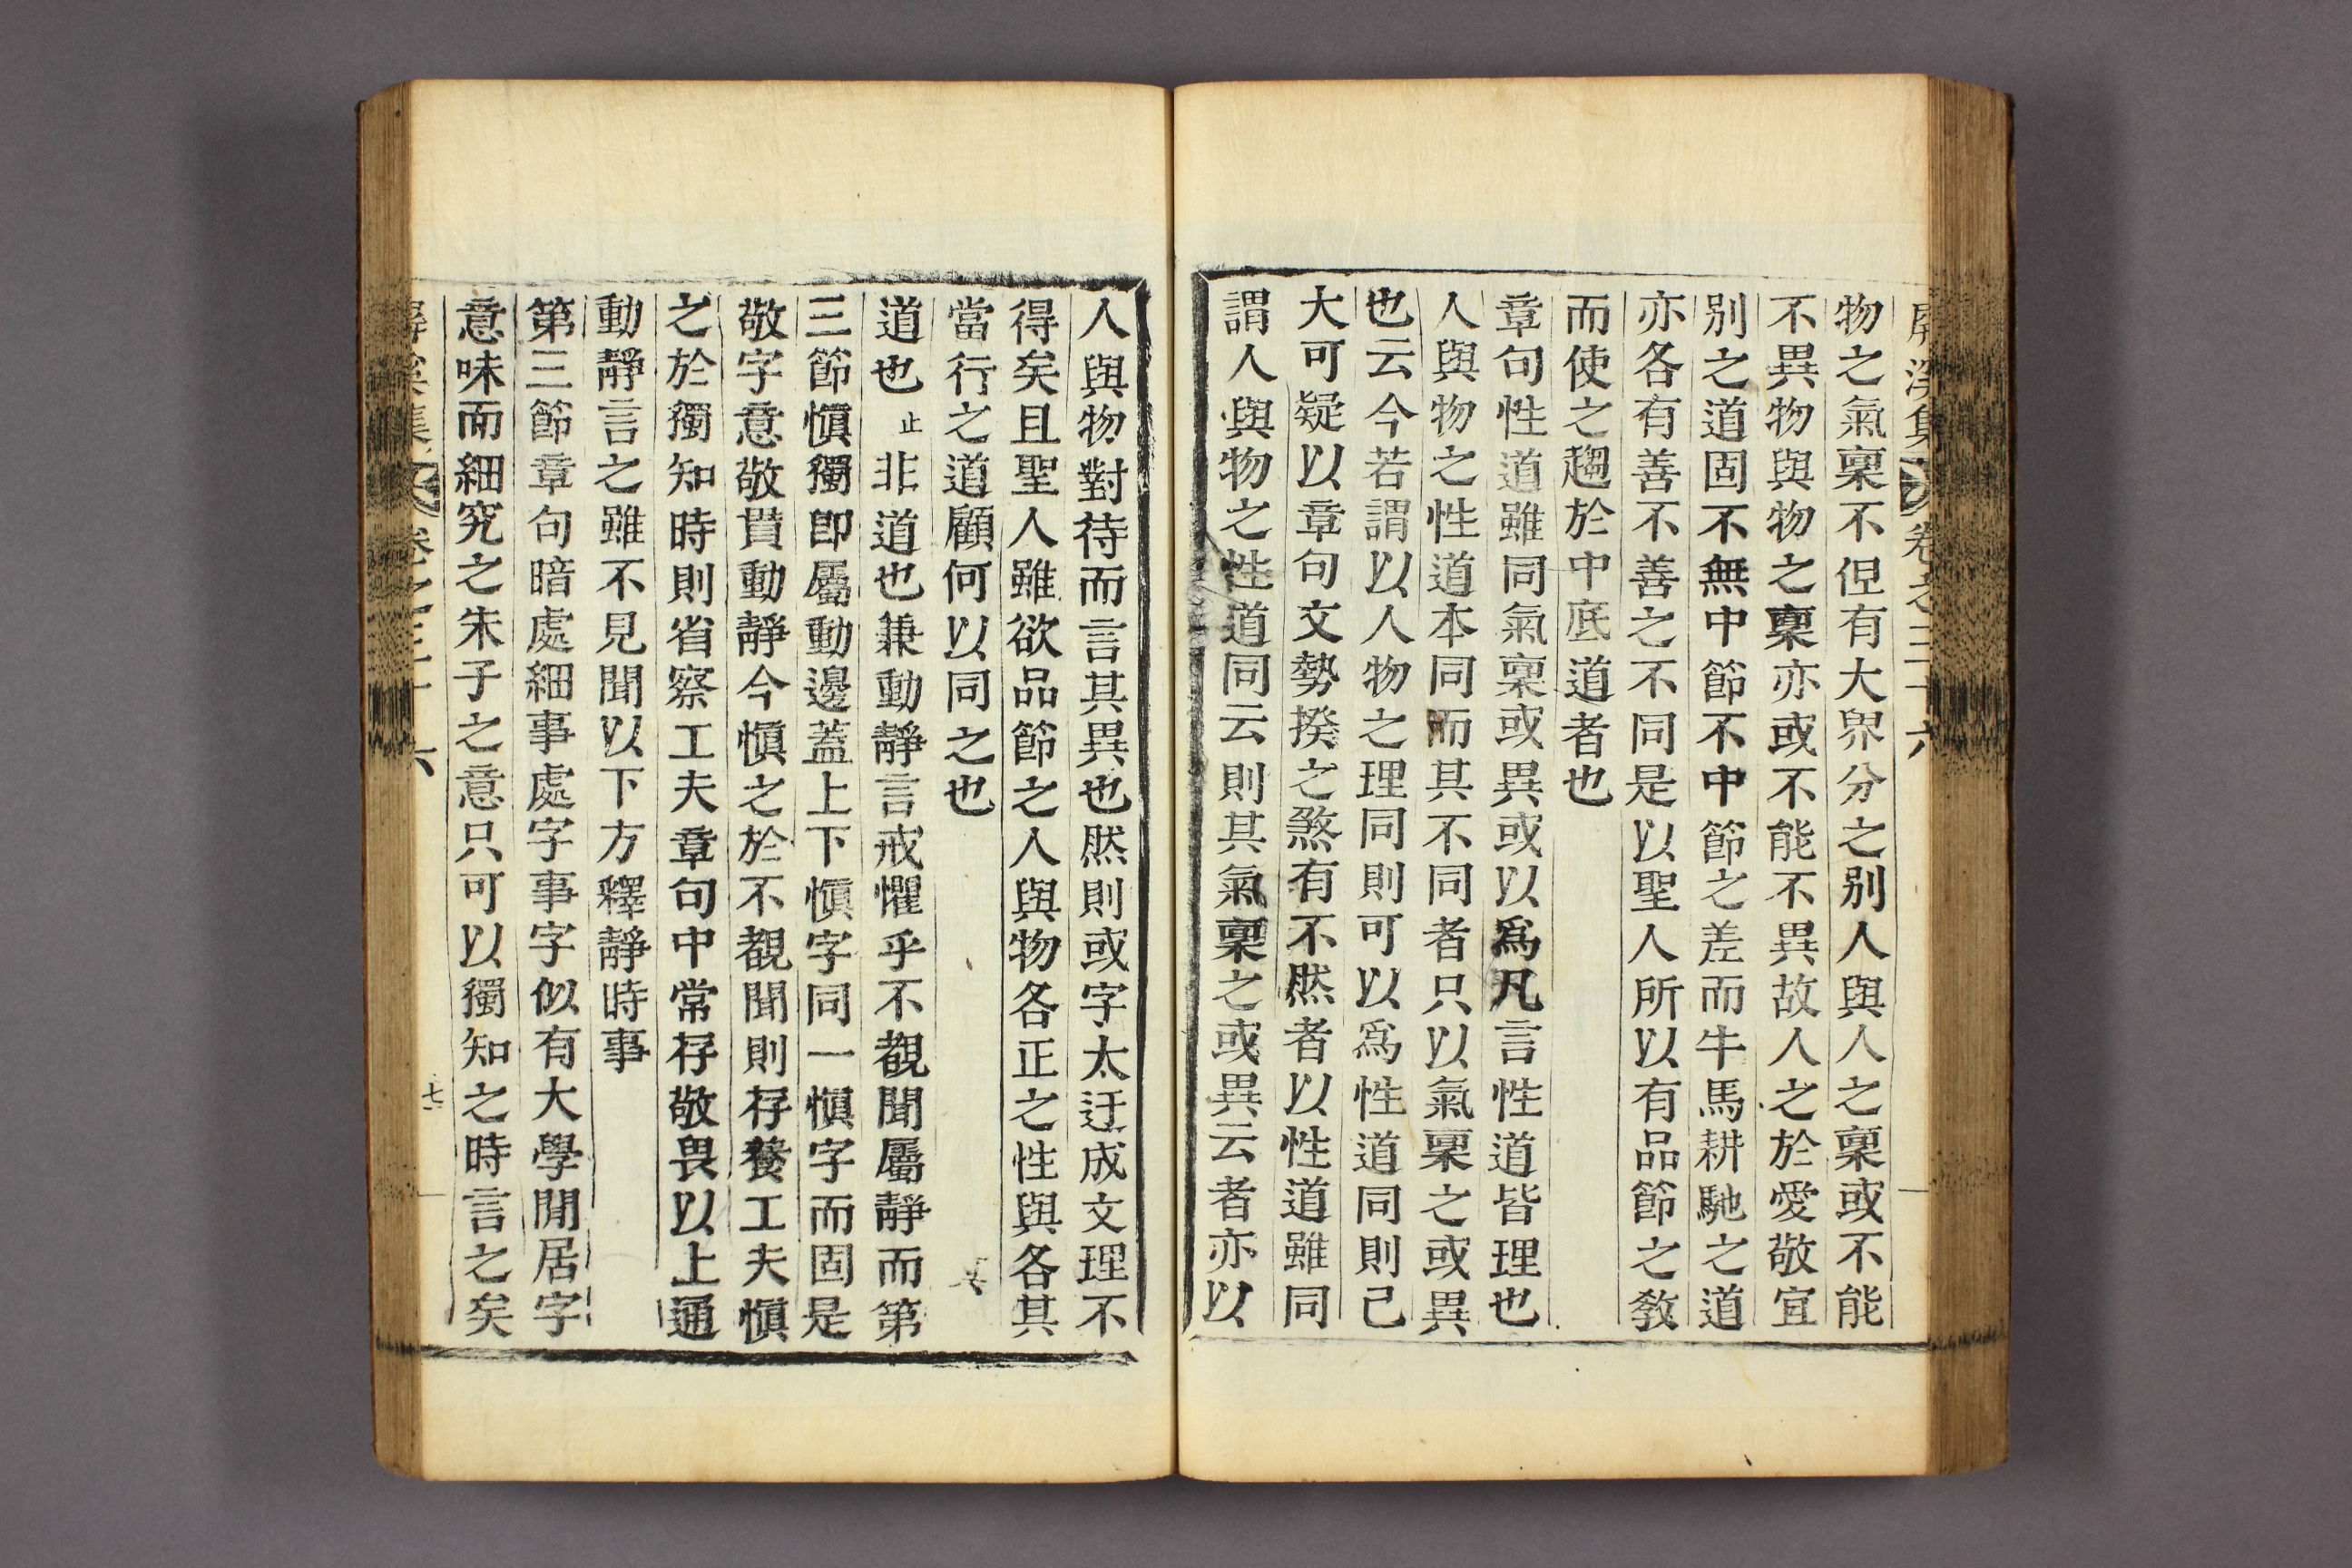 屏溪集 卷之三十六
物之氣稟不但有大界分之別人與人之稟或不能
不異物與物之稟亦或不能不異故人之於愛敬宜
別之道固不無中節不中節之差而牛馬耕馳之道
亦各有善不善之不同是以聖人所以有品節之敎
而使之趨於中底道者也
章句性道雖同氣稟或異或以爲凡言性道皆理也
人與物之性道本同而其不同者只以氣稟之或異
也云今若謂以人物之理同則可以爲性道同則已
大可疑以章句文勢揆之煞有不然者以性道雖同
謂人與物之性道同云則其氣稟之或異云者亦以
人與物對待而言其異也然則或字太迂成文理不
得矣且聖人雖欲品節之人與物各正之性與各其
當行之道顧何以同之也
道也止非道也兼動靜言戒懼乎不覩聞屬靜而第
三節愼獨卽屬動邊蓋上下愼字同一愼字而固是
敬字意敬貫動靜今愼之於不覩聞則存養工夫愼
之於獨知時則省察工夫章句中常存敬畏以上通
動靜言之雖不見聞以下方釋靜時事
第三節章句暗處細事處字事字似有大學閒居字
意味而細究之朱子之意只可以獨知之時言之矣
屏溪集 卷之三十六 七